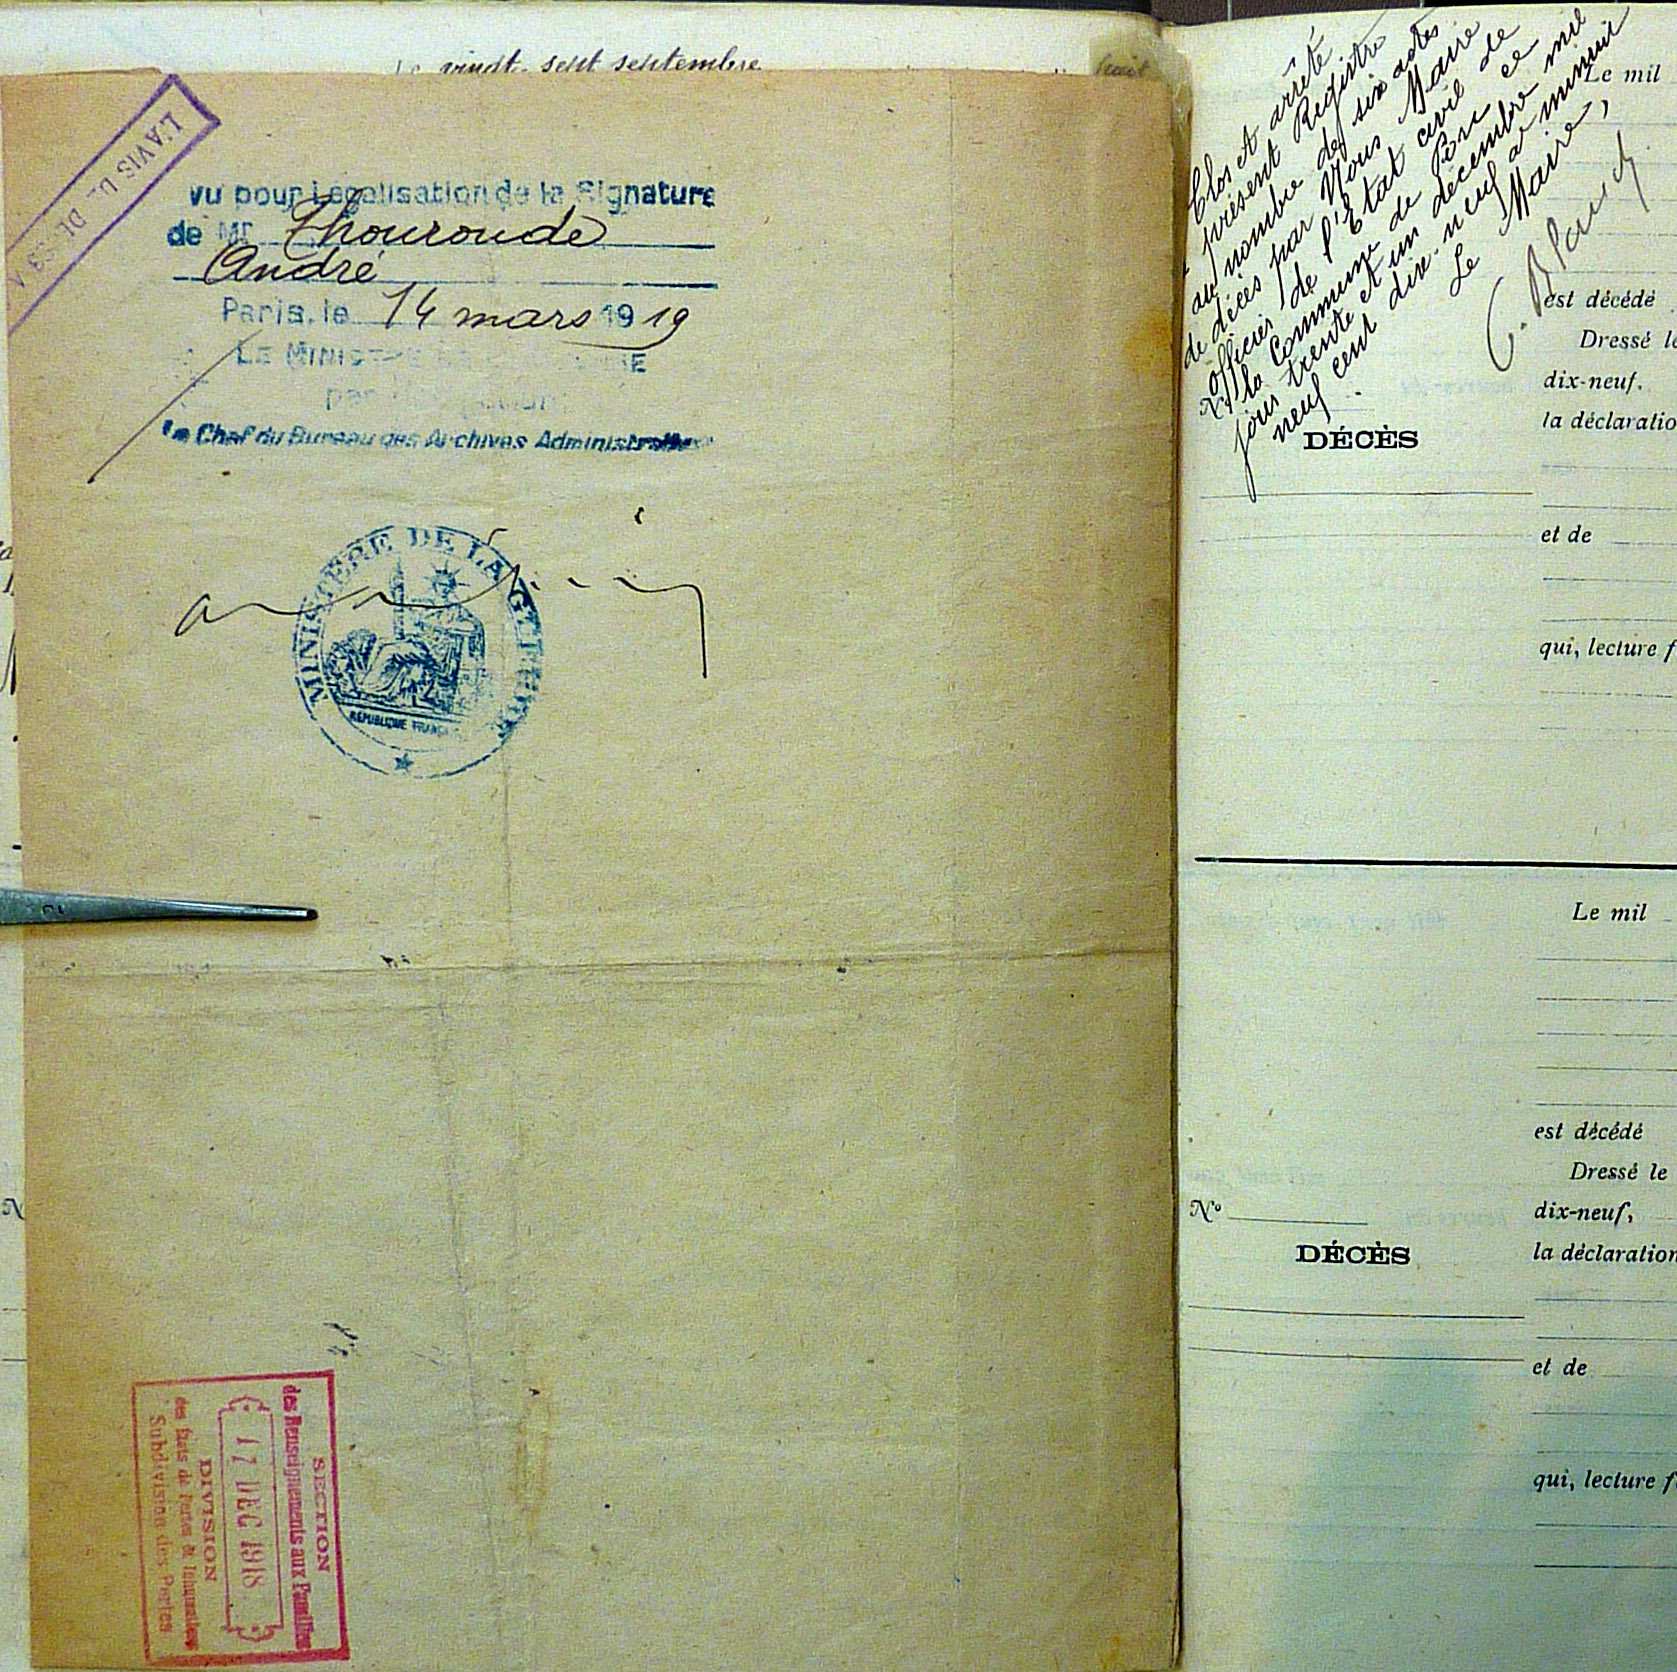 vingt-sept septembre
L'AVIS DE DÉCÈS A
Vu pour Légalisation de la Signature
de Mr Thouroude
André
Paris, le 14 mars 1919
LE MINISTRE DE LA GUERRE
par
Le Chef du Bureau des Archives Administratives
MINISTÈRE DE LA GUERRE
RÉPUBLIQUE FRANÇAISE
SECTION
des Renseignements aux Familles
17 DEC 1918
DIVISION
des États de Pertes &
Subdivision des Pertes
Clos et arrêté
présent Registre
au nombre de six actes
de décès par Nous Maire
officier de l'État civil de
la Commune de ce
jour trente et un décembre mil
neuf cent dix-neuf à minuit
Le Maire,
C. Blanch
Le mil
est décédé
Dressé le
dix-neuf,
la déclaratio
No
DÉCÈS
et de
qui, lecture f
Le mil
est décédé
Dressé le
No
dix-neuf,
DÉCÈS
la déclaration
et de
qui, lecture f